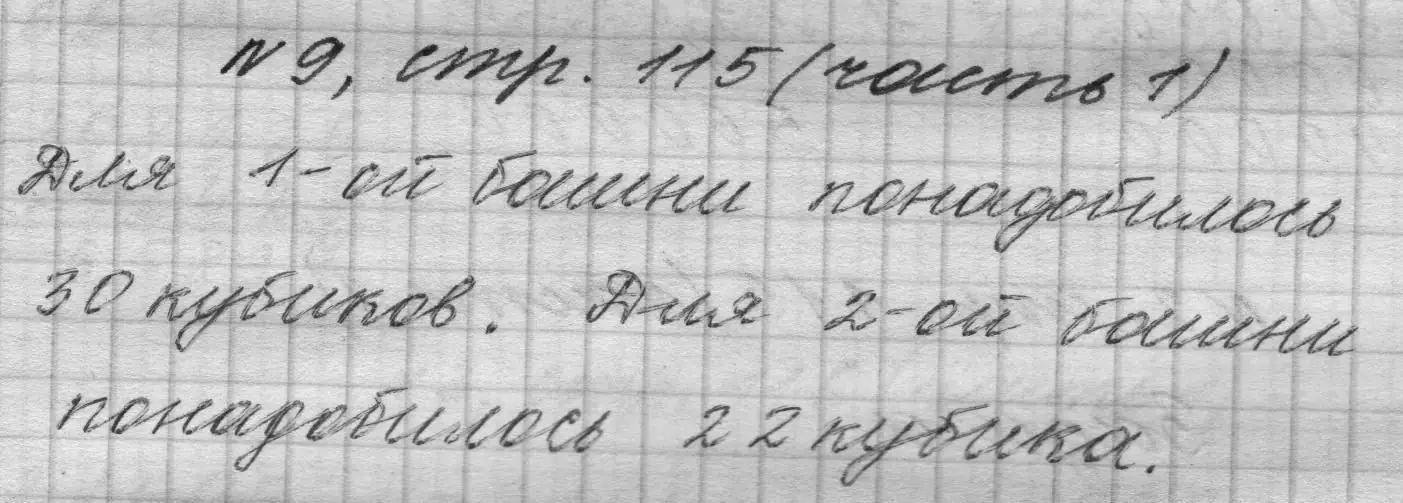 N 9, стр. 115 (часть 1)
Для 1-ой башни понадобилось
30 кубиков. Для 2-ой башни
понадобилось 22 кубика.